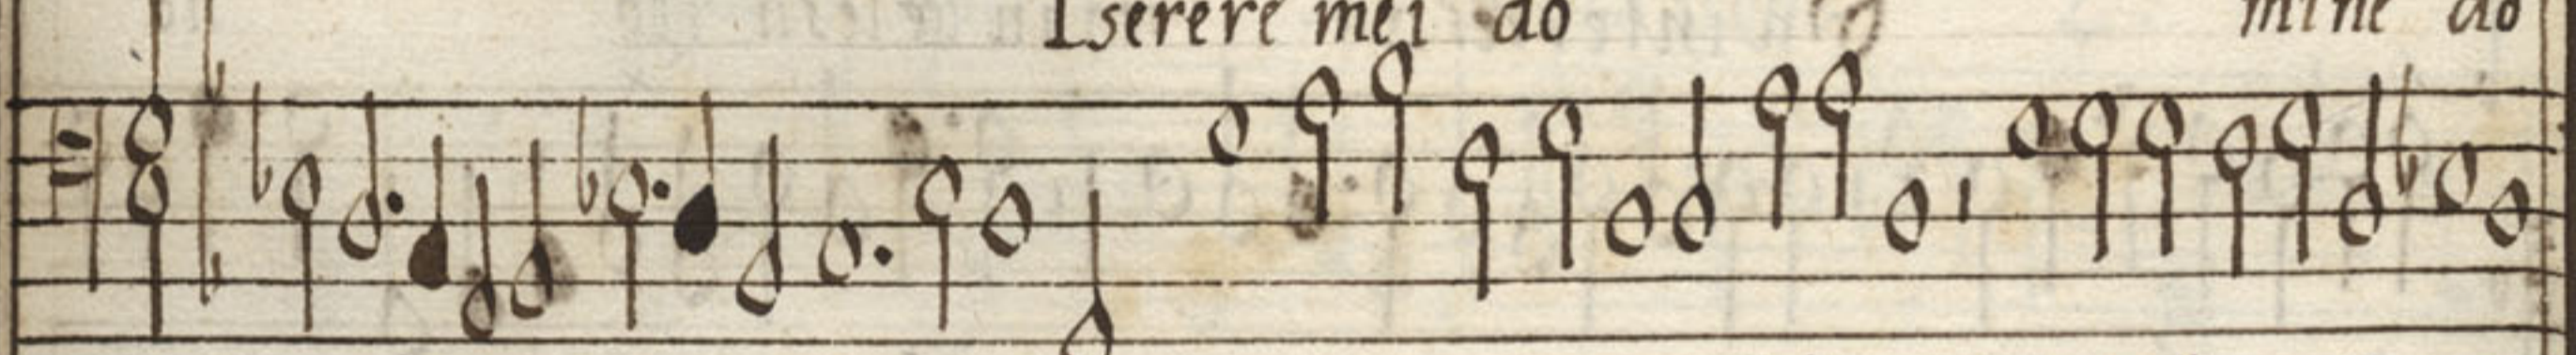 Iserere mei do mine do